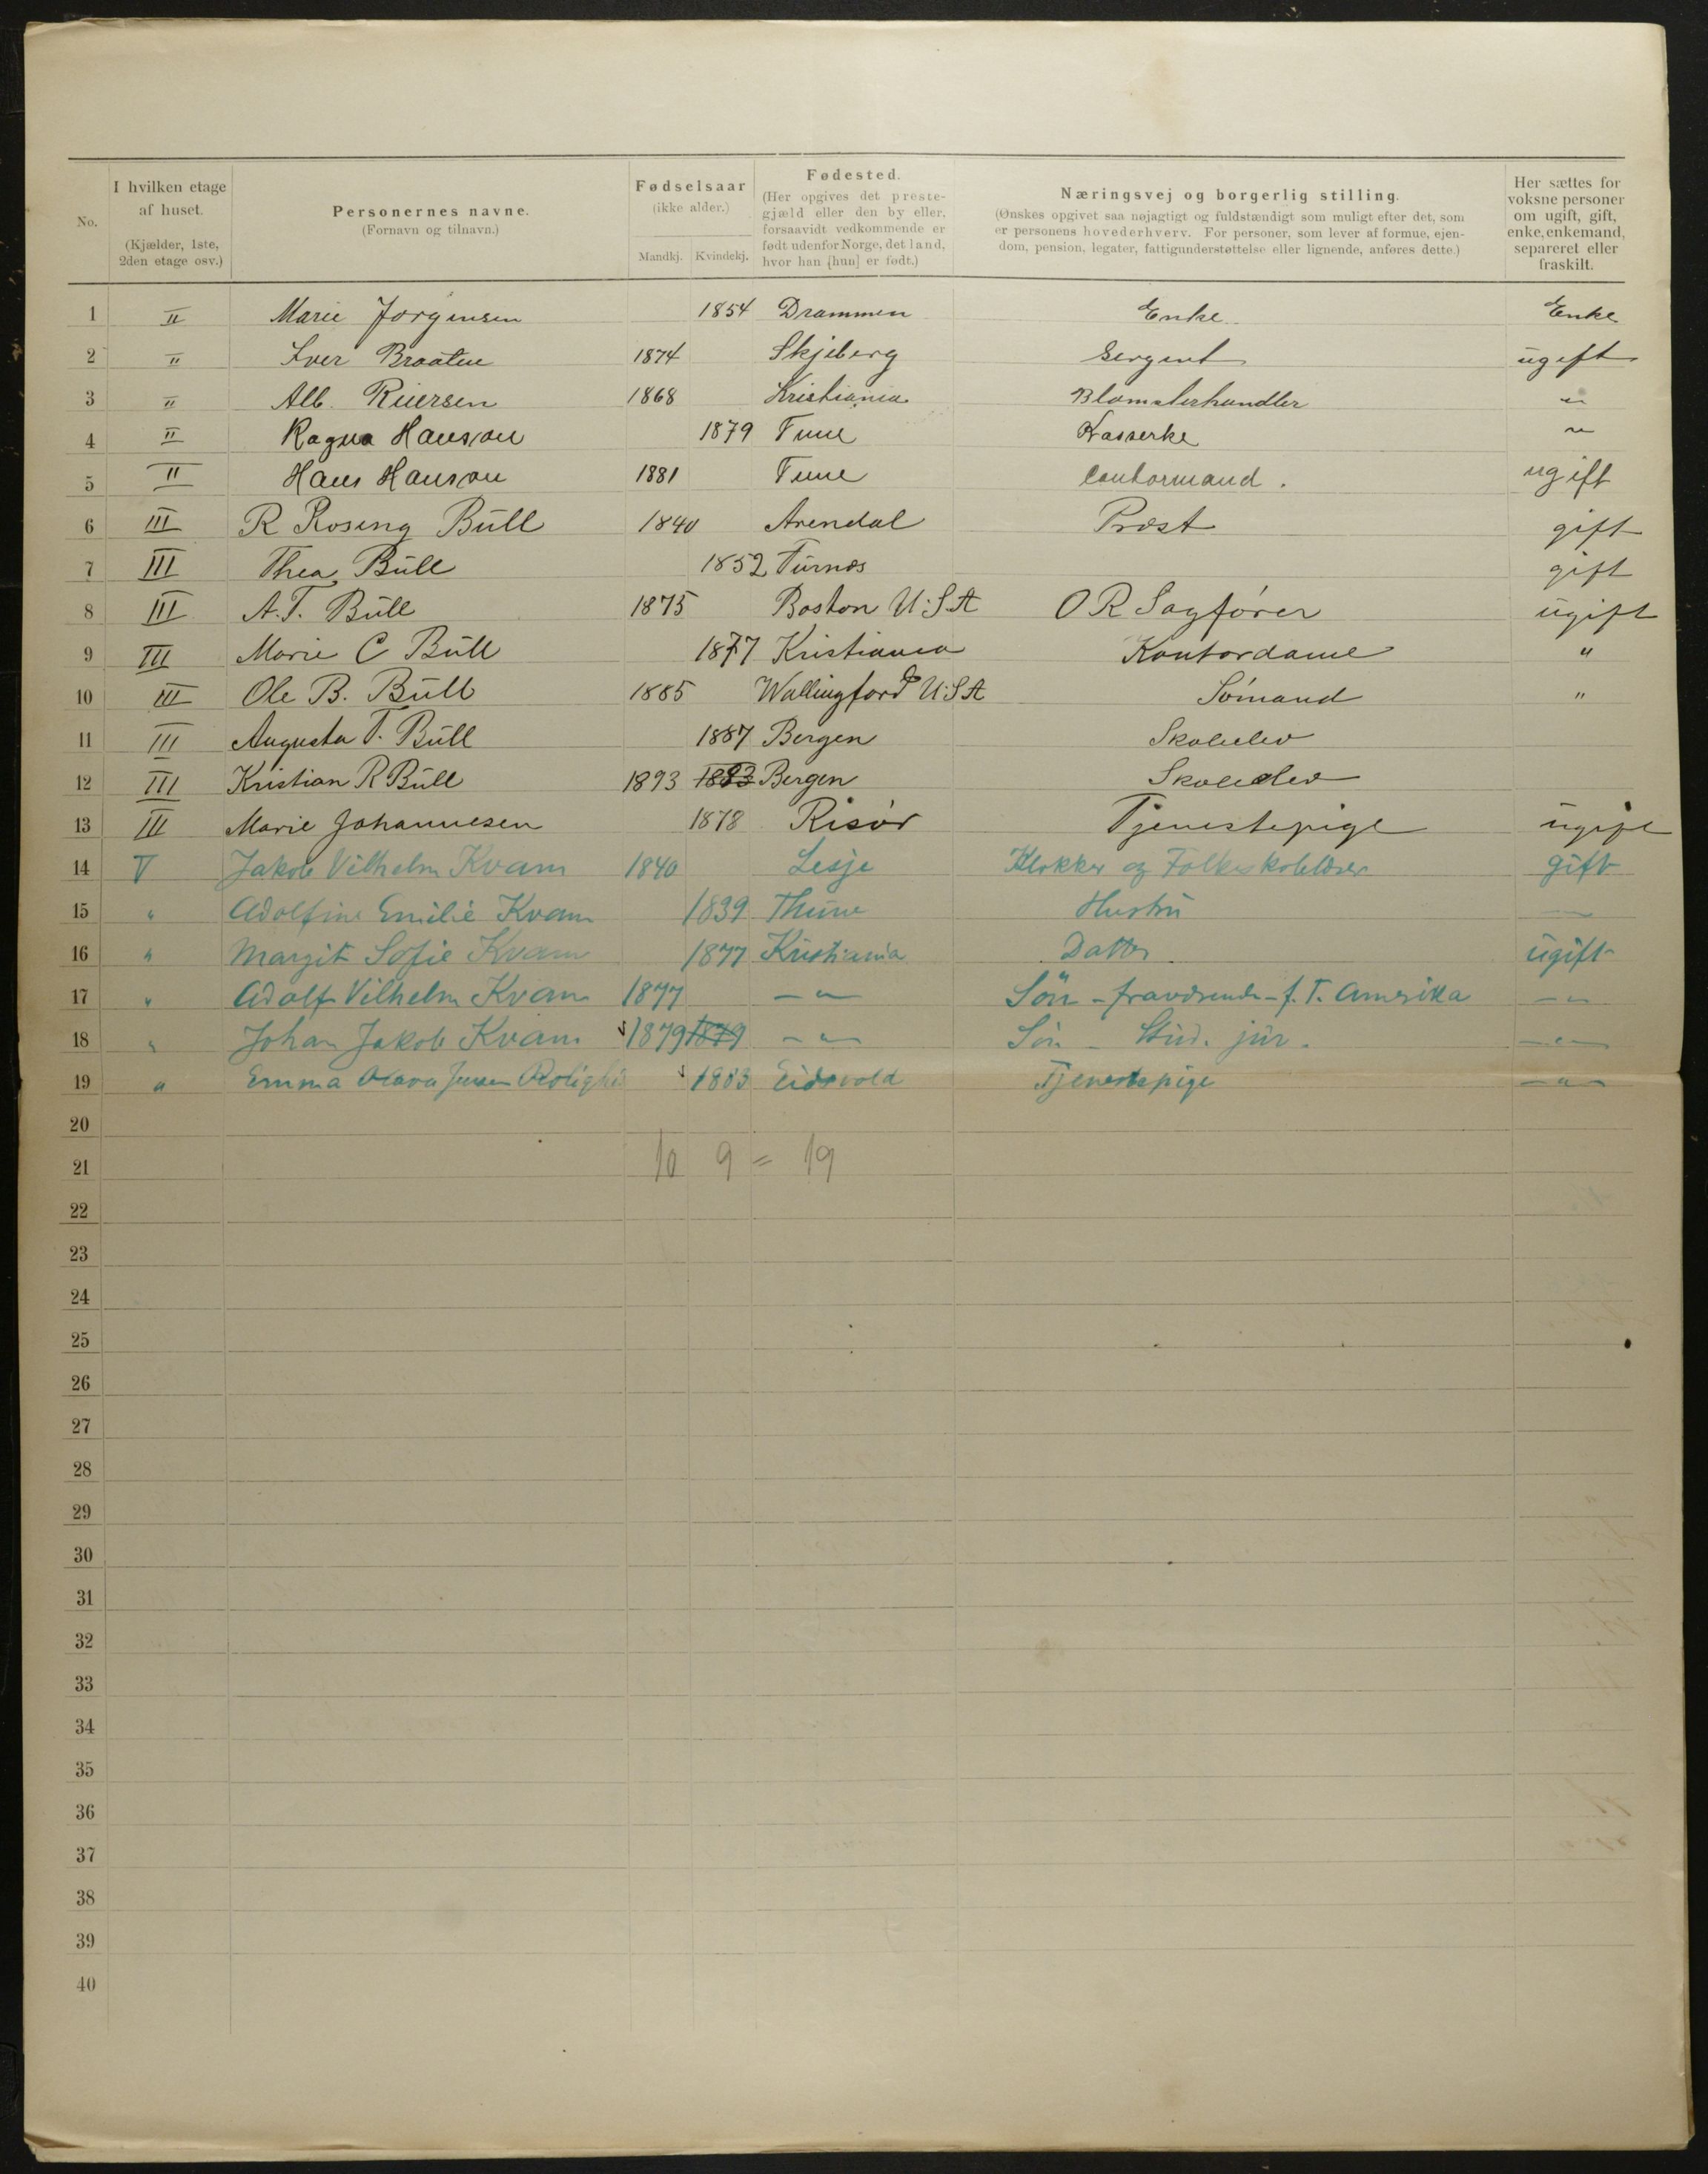 No.
I hvilken etage af huset.
(Kjælder, 1ste, 2den etage osv.)
Personernes navne.
(Fornavn og tilnavn.)
Fødselsaar
(ikke alder.)
Mandkj. Kvindekj.
Fødested.
(Her opgives det prestegjæld eller den by eller, forsaavidt vedkommende er født udenfor Norge, det land, hvor han [hun] er født.)
Næringsvej og borgerlig stilling.
(Ønskes opgivet saa nøjagtigt og fuldstændigt som muligt efter det, som er personens hovederhverv. For personer, som lever af formue, ejendom, pension, legater, fattigunderstøttelse eller lignende, anføres dette.)
Her sættes for voksne personer om ugift, gift, enke, enkemand, separeret eller fraskilt.
1 II Marie Jørgensen 1854 Drammen Enke Enke
2 II Iver Braaten 1874 Skjeberg Sergent ugift
3 II Alb. Riiersen 1868 Kristiania Blomsterhandler "
4 II Ragna Hansson 1879 Tune Kasserke "
5 II Hans Hansson 1881 Tune Contormand. ugift
6 III R Rosing Bull 1840 Arendal Præst gift
7 III Thea Bull 1852 gift
8 III A.T. Bull 1875 Boston U.S.A O R Sagfører ugift
9 III Marie C Bull 1877 Kristiania Kontordame "
10 III Ole B. Bull 1885 Wallingford U.S.A Sömand "
11 III Augusta T. Bull 1887 Bergen Skoleelev
12 III Kristian R Bull 1893 1883 Bergen Skoleelev
13 III Marie Johannesen 1878 Risör Tjenestepige ugift
14 V Jakob Vilhelm Kvam 1840 Lesje Klokker og Folkeskolelærer gift
15 " Adolfine Emilie Kvam 1839 Thune Hustru —
16 " Margit Sofie Kvam 1877 Kristiania Datter ugift
17 " Adolf Vilhelm Kvam 1877 — " — Sön - fraværende - f. T. Amerika — " —
18 " Johan Jakob Kvam 1879 1879 — " — Sön - Stud. jur. — " —
19 " Emma Olava Jensen 1883 Eidsvold Tjenestepige — " —
20
21 10 9 = 19
22
23
24
25
26
27
28
29
30
31
32
33
34
35
36
37
38
39
40